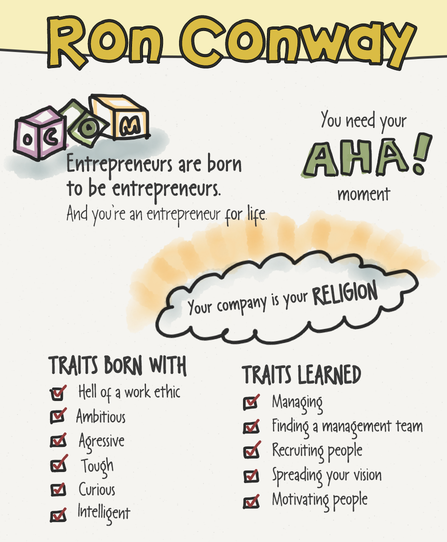 Ron Conway
C O M
Entrepreneurs are born
to be entrepreneurs.
And you're an entrepreneur for life.
You need your
AHA!
moment
Your company is your RELIGION
TRAITS BORN WITH
Hell of a work ethic
Ambitious
Agressive
Tough
Curious
Intelligent
TRAITS LEARNED
Managing
Finding a management team
Recruiting people
Spreading your vision
Motivating people